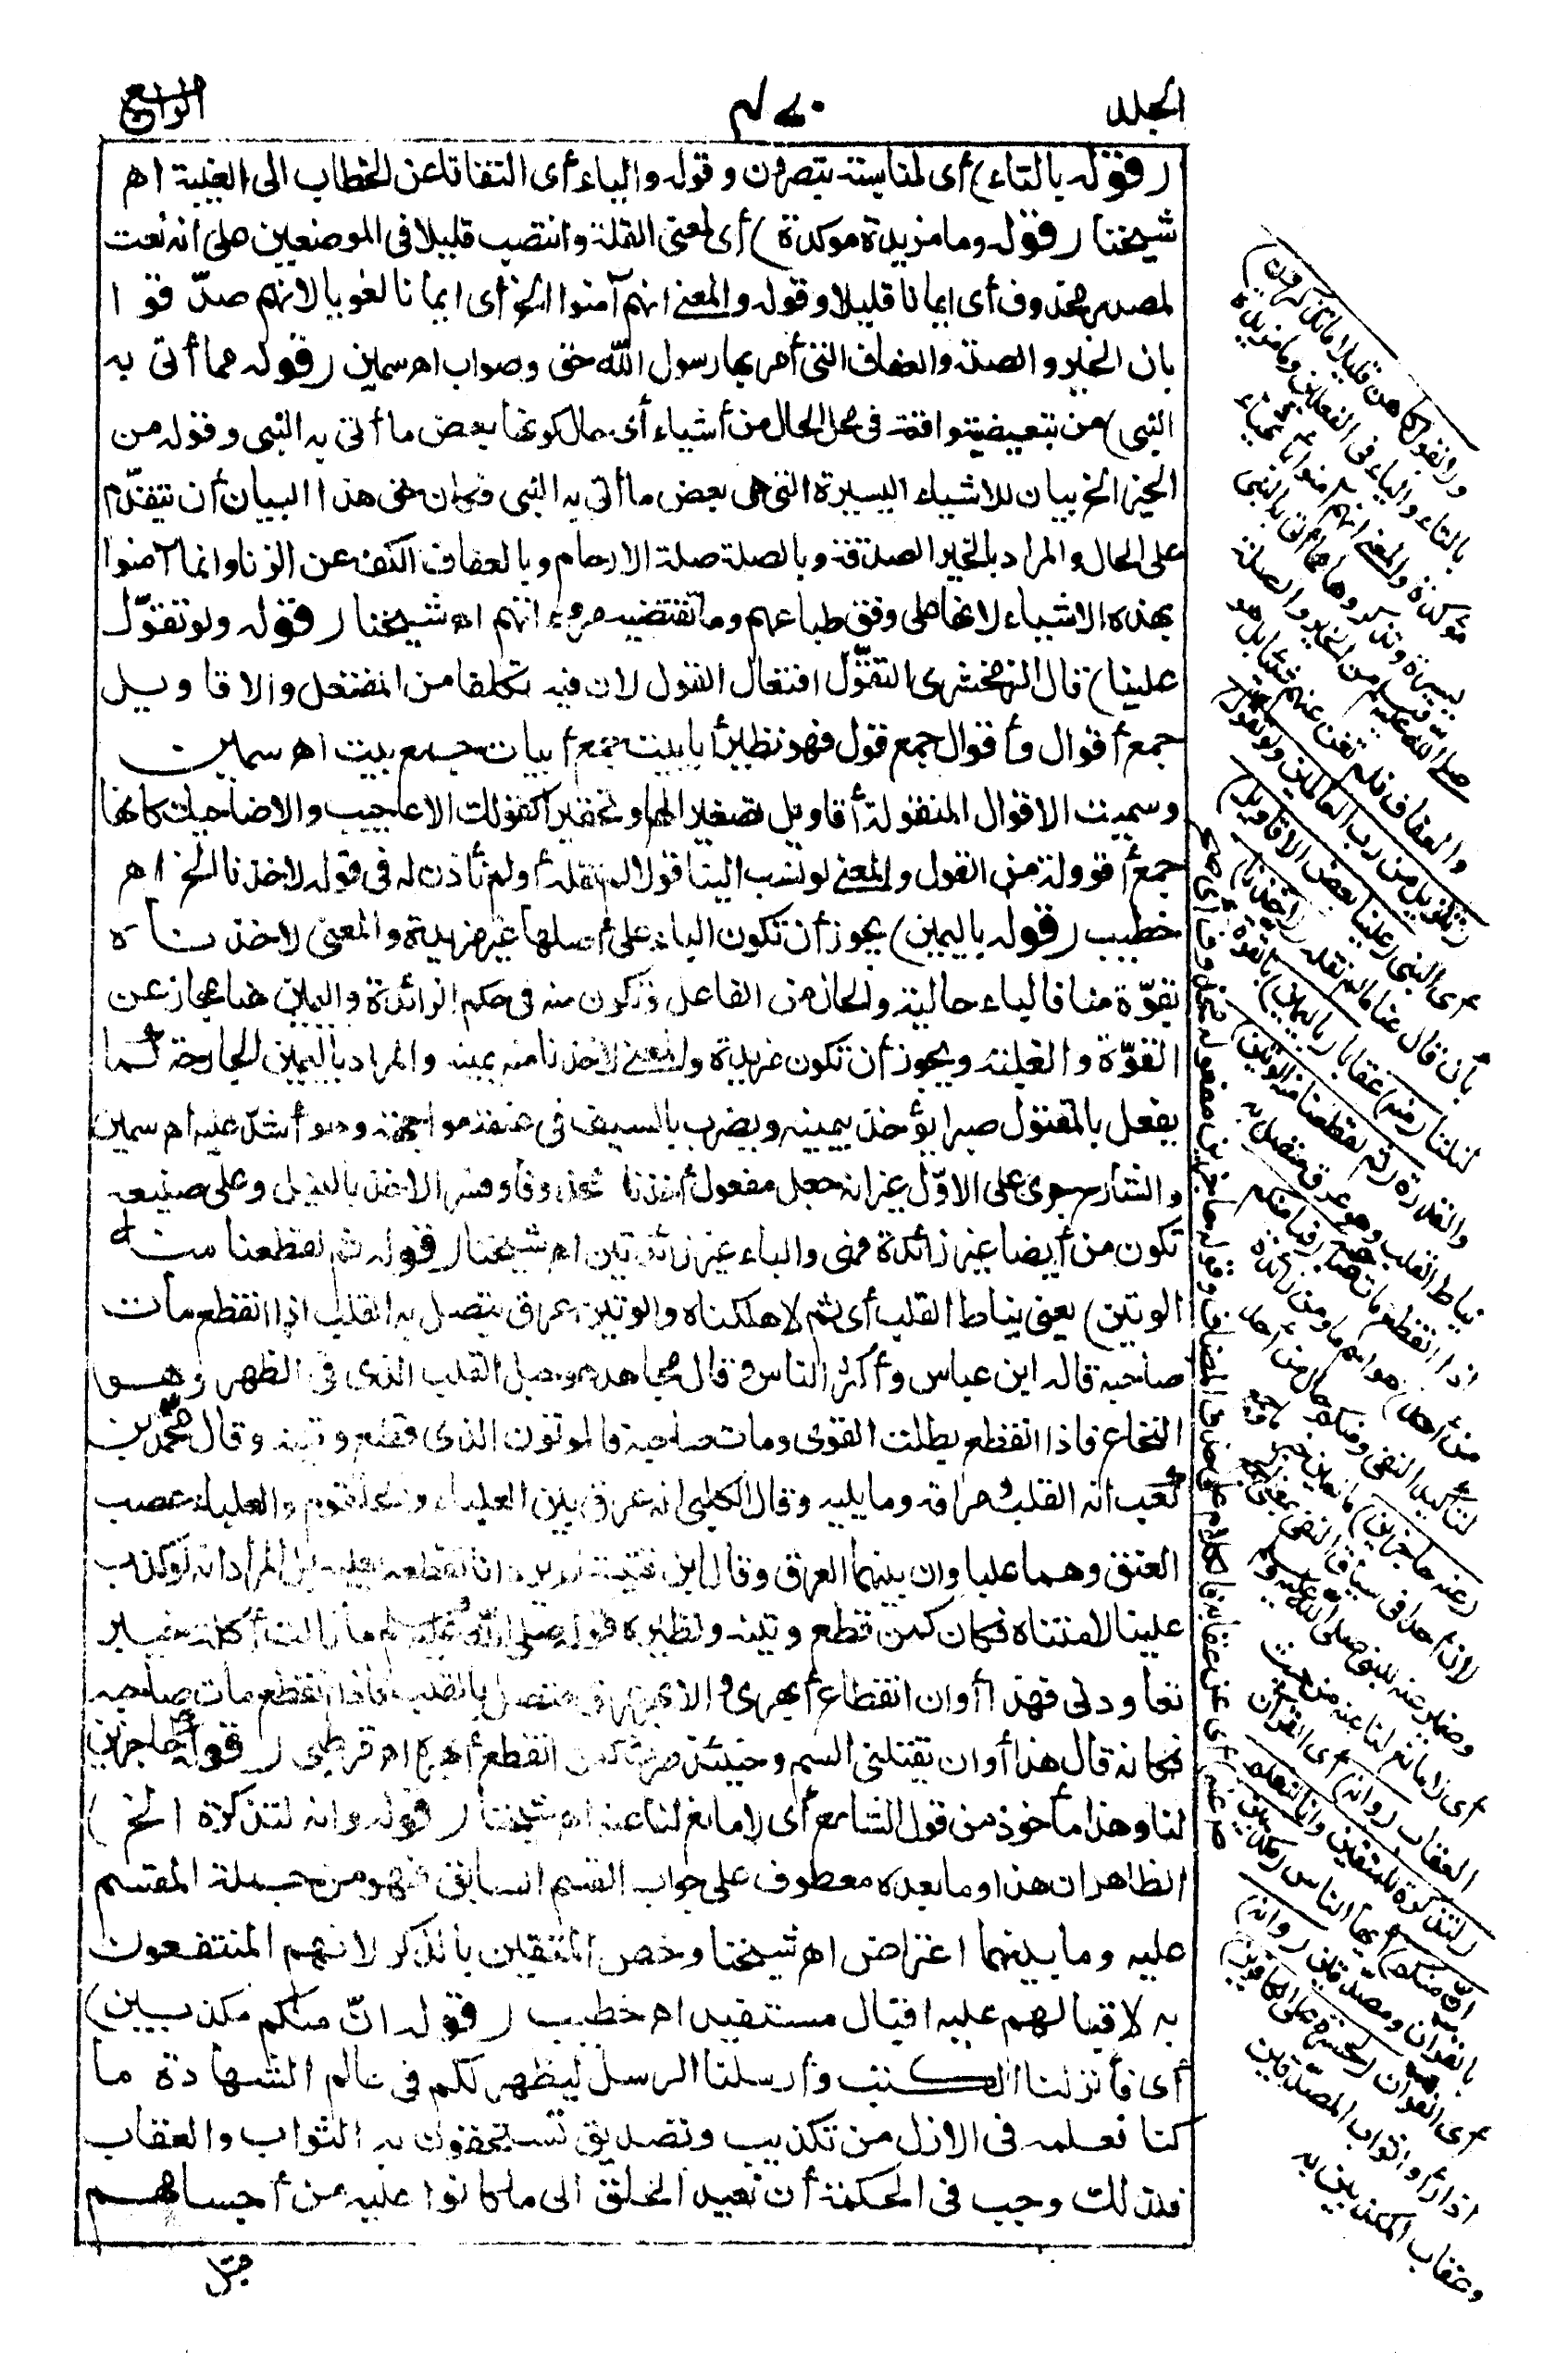 الجلد
٤٧٠
الرابع
(قوله بالتاء) أى لمناسبة تبصرون وقوله والياء أى التفاتا عن الخطاب الى الغيبة اه
شيخنا (قوله وما مزيدة موكدة) أى لمعنى القلة وانتصب قليلا فى الموضعين على أنه نعت
لمصدر محذوف أى ايمانا قليلا وقوله والمعنى انهم آمنوا الخ أى ايمانا لغويا لانهم صدّقوا
بان الخير والصلة والعفاف التى أمر بها رسول الله حق وصواب اه سمين (قوله مما أتى به
النبى) من تبعيضية واقعة فى محل الحال من أشياء أى حال كونها بعض ما أتى به النبى وقوله من
الخير الخ بيان للاشياء اليسيرة التى هى بعض ما أتى به النبى فكان حق هذا البيان أن يتقدّم
على الحال والمراد بالخير الصدقة وبالصلة صلة الارحام وبالعفاف الكف عن الزنا وانما آمنوا
بهذه الاشياء لانها على وفق طباعهم وما تقتضيه مروءاتهم اه شيخنا (قوله ولو تقوّل
علينا) قال الزمخشرى التقوّل افتعال القول لان فيه تكلفا من المفتعل والاقاويل
جمع أقوال وأقوال جمع قول فهو نظير أباييت جمع أبيات جمع بيت اه سمين
وسميت الاقوال المنقولة أقاويل تصغيرا لها وتحقيرا كقولك الاعاجيب والاضاحيك كانها
جمع أقوولة من القول والمعنى لو نسب الينا قولا لم نقله أو لم نأذن له فى قوله لاخذنا الخ اه
خطيب (قوله باليمين) يجوز أن تكون الباء على أصلها غير مزيدة والمعنى لاخذناه
بقوّة منا فالباء حالية والحال من الفاعل وتكون منه فى حكم الزائدة واليمين هنا مجاز عن
القوّة والغلبة ويجوز أن تكون مزيدة والمعنى لاخذنا منه يمينه والمراد باليمين الجارحة كما
يفعل بالمقتول صبرا يؤخذ بيمينه ويضرب بالسيف فى عنقه مواجهة وهو أشدّ عليه اه سمين
والشارح جرى على الاوّل غير انه جعل مفعول أخذنا محذوفا وفسر الاخذ بالنيل وعلى صنيعه
تكون من أيضا غير زائدة فمن والباء غير زائدتين اه شيخنا (قوله ثم لقطعنا منه
الوتين) يعنى نياط القلب أى ثم لاهلكناه والوتين عرق يتصل به القلب اذا انقطع مات
صاحبه قاله ابن عباس وأكثر الناس وقال مجاهد هو حبل القلب الذى فى الظهر وهو
النخاع فاذا انقطع بطلت القوى ومات صاحبه والموتون الذى قطع وتينه وقال محمد بن
كعب انه القلب ومراقه وما يليه وقال الكلبى انه عرق بين العلباء والحلقوم والعلباء عصب
العنق وهما علباوان بينهما العرق وقال ابن قتيبة لم يرد انا نقطعه بعينه بل المراد انه لو كذب
علينا لامتناه فكان كمن قطع وتينه ونظيره قوله صلى الله عليه وسلم ما زالت أكلة خيبر
تعاودنى فهذا أوان انقطاع أبهرى والابهر عرق متصل بالقلب فاذا انقطع مات صاحبه
فكانه قال هذا أوان يقتلنى السم وحينئذ صرت كمن انقطع أبهره اه قرطبى (قوله حاجزين
لنا وهذا مأخوذ من قول الشارح أى لا مانع لنا عنه اه شيخنا (قوله وانه لتذكرة الخ)
الظاهر ان هذا وما بعده معطوف على جواب القسم السابق فهو من جملة المقسم
عليه وما بينهما اعتراض اه شيخنا وخص المتقين بالذكر لانهم المنتفعون
به لاقبالهم عليه اقبال مستفيد اه خطيب (قوله انّ منكم مكذبين)
أى فأنزلنا الكتب وأرسلنا الرسل ليظهر لكم فى عالم الشهادة ما
كنا نعلمه فى الازل من تكذيب وتصديق تستحقون به الثواب والعقاب
فلذلك وجب فى الحكمة أن نعيد الخلق الى ما كانوا عليه من أجسامهم
ولا بقول كاهن قليلا ما تذكرون)
بالتاء والياء فى الفعلين وما مزيدة
مؤكدة والمعنى انهم آمنوا بأشياء
يسيرة وتذكروها مما أتى به النبى
صلى الله عليه وسلم من الخير والصلة
والعفاف فلم تغن عنهم شيئا بل هو
(تنزيل من رب العالمين ولو تقول)
أى النبى (علينا بعض الاقاويل)
بأن قال عنا ما لم نقله (لاخذنا)
لنلنا (منه) عقابا (باليمين) بالقوة
والقدرة (ثم لقطعنا منه الوتين)
نياط القلب وهو عرق متصل به
اذا انقطع مات صاحبه (فما منكم
من أحد) هو اسم ما ومن زائدة
لتأكيد النفى ومنكم حال من أحد
(عنه حاجزين) مانعين خبر ما وجمع
لان أحدا فى سياق النفى بمعنى الجمع
وضمير عنه للنبى صلى الله عليه وسلم
أى لا مانع لنا عنه من حيث
العقاب (وانه) أى القرآن
(لتذكرة للمتقين وانا لنعلم
انّ منكم) أيها الناس (مكذبين)
بالقرآن ومصدّقين (وانه)
أى القرآن (لحسرة على الكافرين)
اذا رأوا ثواب المصدّقين
وعقاب المكذبين به